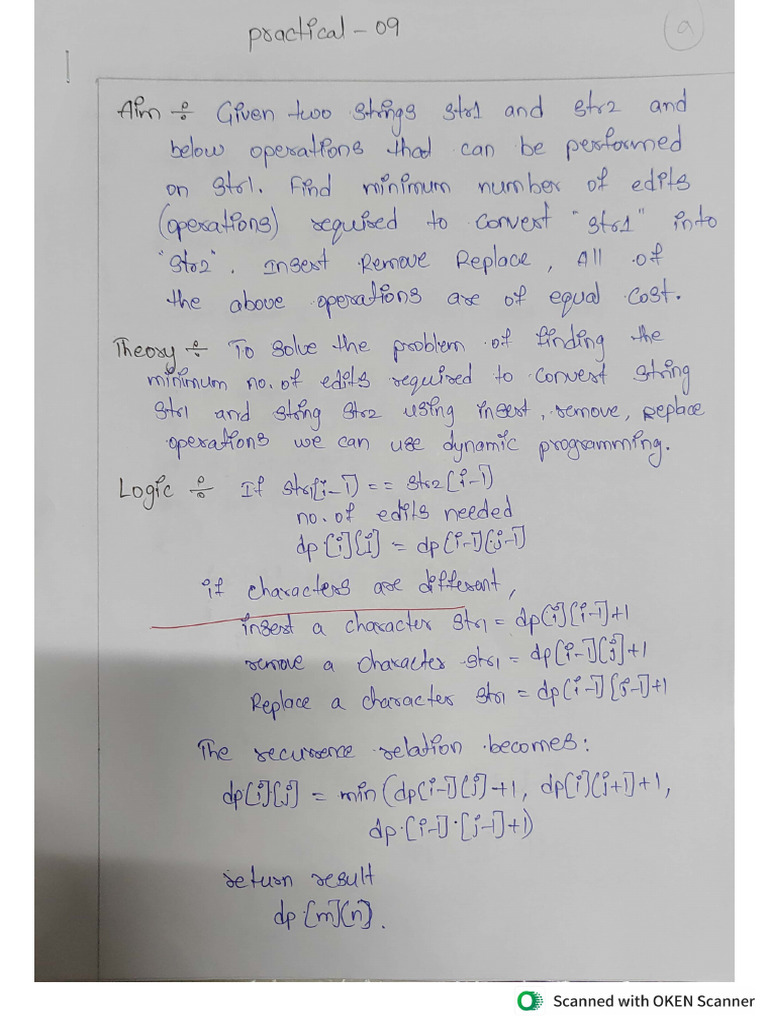 practical - 09
a
Aim ÷ Given two strings str1 and str2 and
below operations that can be performed
on str1. Find minimum number of edits
(operations) required to convert "str1" into
"str2". Insert Remove Replace, All of
the above operations are of equal cost.
Theory ÷ To solve the problem of finding the
minimum no. of edits required to convert string
str1 and string str2 using insert, remove, replace
operations we can use dynamic programming.
Logic ÷ If str1[i-1] == str2[j-1]
no. of edits needed
dp[i][j] = dp[i-1][j-1]
if characters are different,
insert a character str1 = dp[i][j-1]+1
remove a character str1 = dp[i-1][j]+1
Replace a character str1 = dp[i-1][j-1]+1
The recurrence relation becomes:
dp[i][j] = min(dp[i-1][j]+1, dp[i][j+1]+1,
dp.[i-1].[j-1]+1)
return result
dp.[m][n].
Scanned with OKEN Scanner